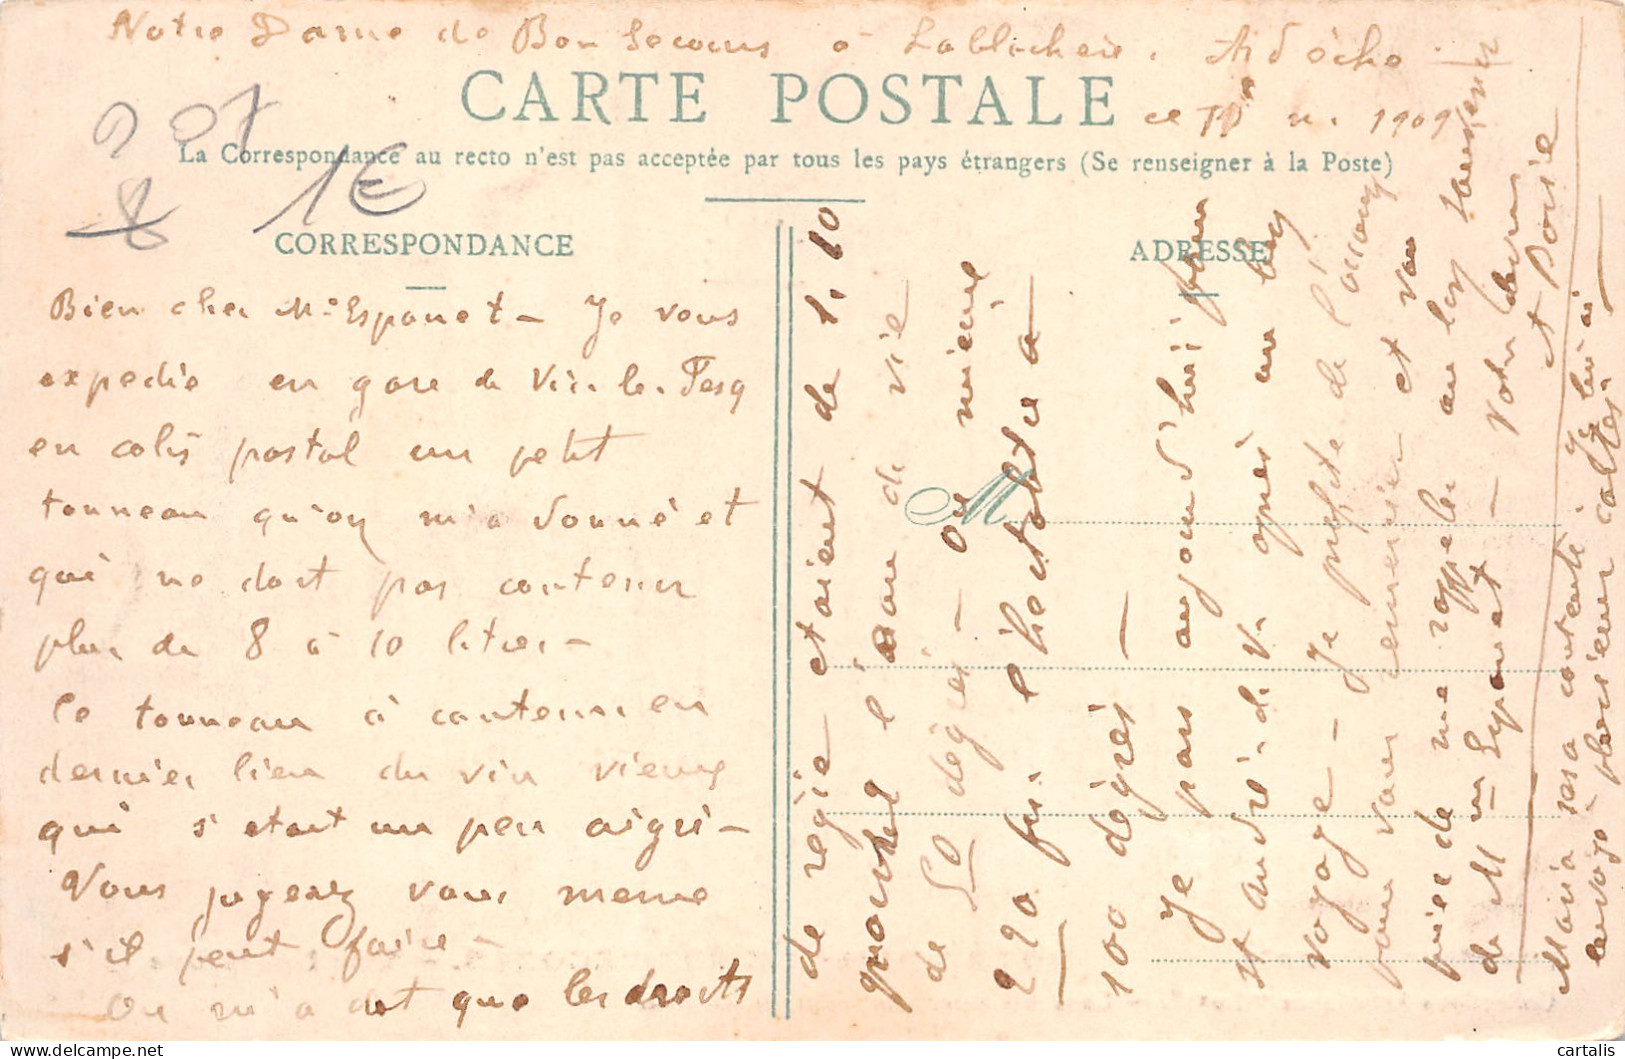 Notre Dame de Bon Secours à Lablachère. Ardèche
CARTE POSTALE
ce 1909
La Correspondance au recto n'est pas acceptée par tous les pays étrangers (Se renseigner à la Poste)
07
1€
8
CORRESPONDANCE
ADRESSE
Bien cher Mr Espanet – Je vous
expedie en gare de Vic-le-Fesq
en colis postal un petit
tonneau qu'on m'a donné et
qui ne doit pas contenir
plus de 8 à 10 litres –
Ce tonneau à contenu en
dernier lieu du vin vieux
qui s'etait un peu aigri –
Vous jugerez vous meme
s'il peut faire –
On m'a dit que les droits
de régie etaient de 1.10
quand l'eau de vie
de 50 degrés – ou mieux
220 fr. l'hectolitre à
100 degrés –
M
Je pars aujourd'hui pour
St André-de-V. après un long
voyage – Je profite de l'occasion
pour vous remercier et vous
prier de me rappeler au bon souvenir
de M me Espanet – Votre
et Dorie
Maria sera contente. Je lui ai
envoyé plusieurs cartes
cartalis